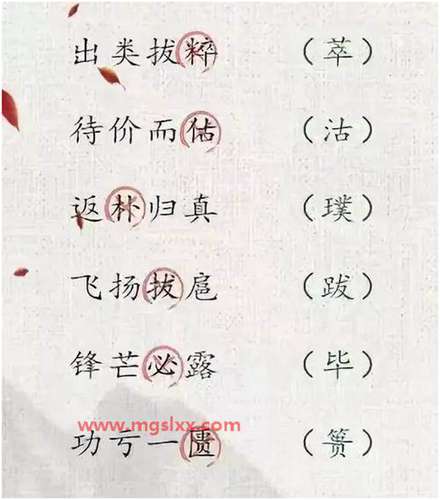 出类拔粹 （萃）
待价而估 （沽）
返朴归真 （璞）
飞扬拔扈 （跋）
锋芒必露 （毕）
www.mgslxx.com
功亏一匮 （篑）